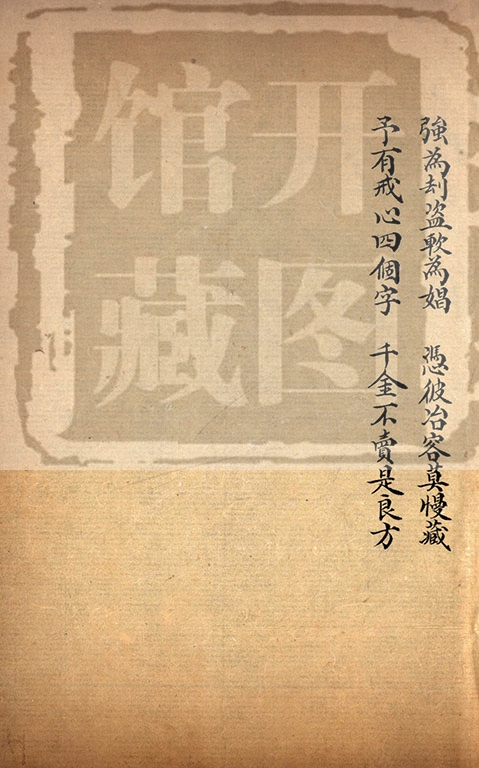 強為刦盜軟為娼　憑彼冶容莫慢藏
予有戒心四個字　千金不賣是良方
开图
馆藏